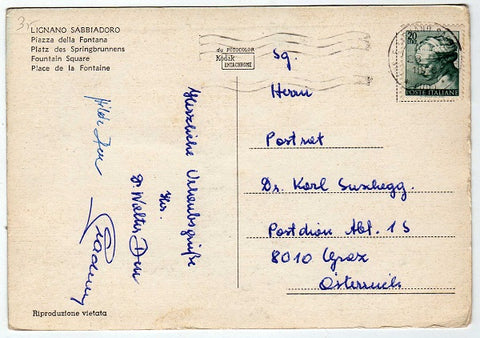 LIGNANO SABBIADORO
Piazza della Fontana
Platz des Springbrunnens
Fountain Square
Place de la Fontaine
su FOTOCOLOR
Kodak
EKTACHROME
20
POSTE ITALIANE
Sg.
Herrn
Postrat
Dr. Karl Suschegg.
Postdion Abt. 15
8010 Graz
Österreich
Herzliche Urlaubsgrüße
Ihr
Dr. Walter
Riproduzione vietata